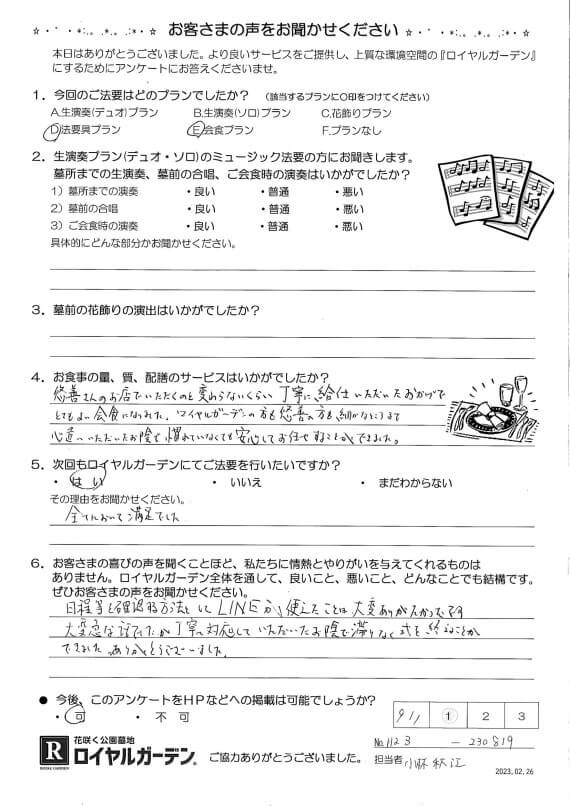 ☆・・*:.。.*.。.:*・☆ お客さまの声をお聞かせください ☆・・*:.。.*.。.:*・☆
本日はありがとうございました。より良いサービスをご提供し、上質な環境空間の『ロイヤルガーデン』
にするためにアンケートにお答えくださいませ。
1．今回のご法要はどのプランでしたか？（該当するプランに○印をつけてください）
A.生演奏(デュオ)プラン B.生演奏(ソロ)プラン C.花飾りプラン
D法要具プラン E会食プラン F.プランなし
2．生演奏プラン(デュオ・ソロ)のミュージック法要の方にお聞きします。
墓所までの生演奏、墓前の合唱、ご会食時の演奏はいかがでしたか？
1）墓所までの演奏 ・良い ・普通 ・悪い
2）墓前の合唱 ・良い ・普通 ・悪い
3）ご会食時の演奏 ・良い ・普通 ・悪い
具体的にどんな部分かお聞かせください。
3．墓前の花飾りの演出はいかがでしたか？
4．お食事の量、質、配膳のサービスはいかがでしたか？
悠善さんのお店でいただくのと変わらないくらい丁寧に給仕いただいたおかげで
とてもよい会食になれた。ロイヤルガーデンの方も悠善の方も細かなところまで
心遣いいただいたお陰で慣れていなくても安心してお任せすることができました。
5．次回もロイヤルガーデンにてご法要を行いたいですか？
・はい ・いいえ ・まだわからない
その理由をお聞かせください。
全てにおいて満足でした
6．お客さまの喜びの声を聞くことほど、私たちに情熱とやりがいを与えてくれるものは
ありません。ロイヤルガーデン全体を通して、良いこと、悪いこと、どんなことでも結構です。
ぜひお客さまの声をお聞かせください。
日程等を確認する方法としてLINEが使えたことは大変ありがたかったです
大変急な話でしたが丁寧に対応していただいたお陰で滞りなく式を終えることが
できました。ありがとうございました。
● 今後、このアンケートをHPなどへの掲載は可能でしょうか？
・可 ・不可
9/1 1 2 3
No.1123 － 230819
R
ROYAL GARDEN
花咲く公園墓地
ロイヤルガーデン®
ご協力ありがとうございました。
担当者 小林秋江
2023.02.26